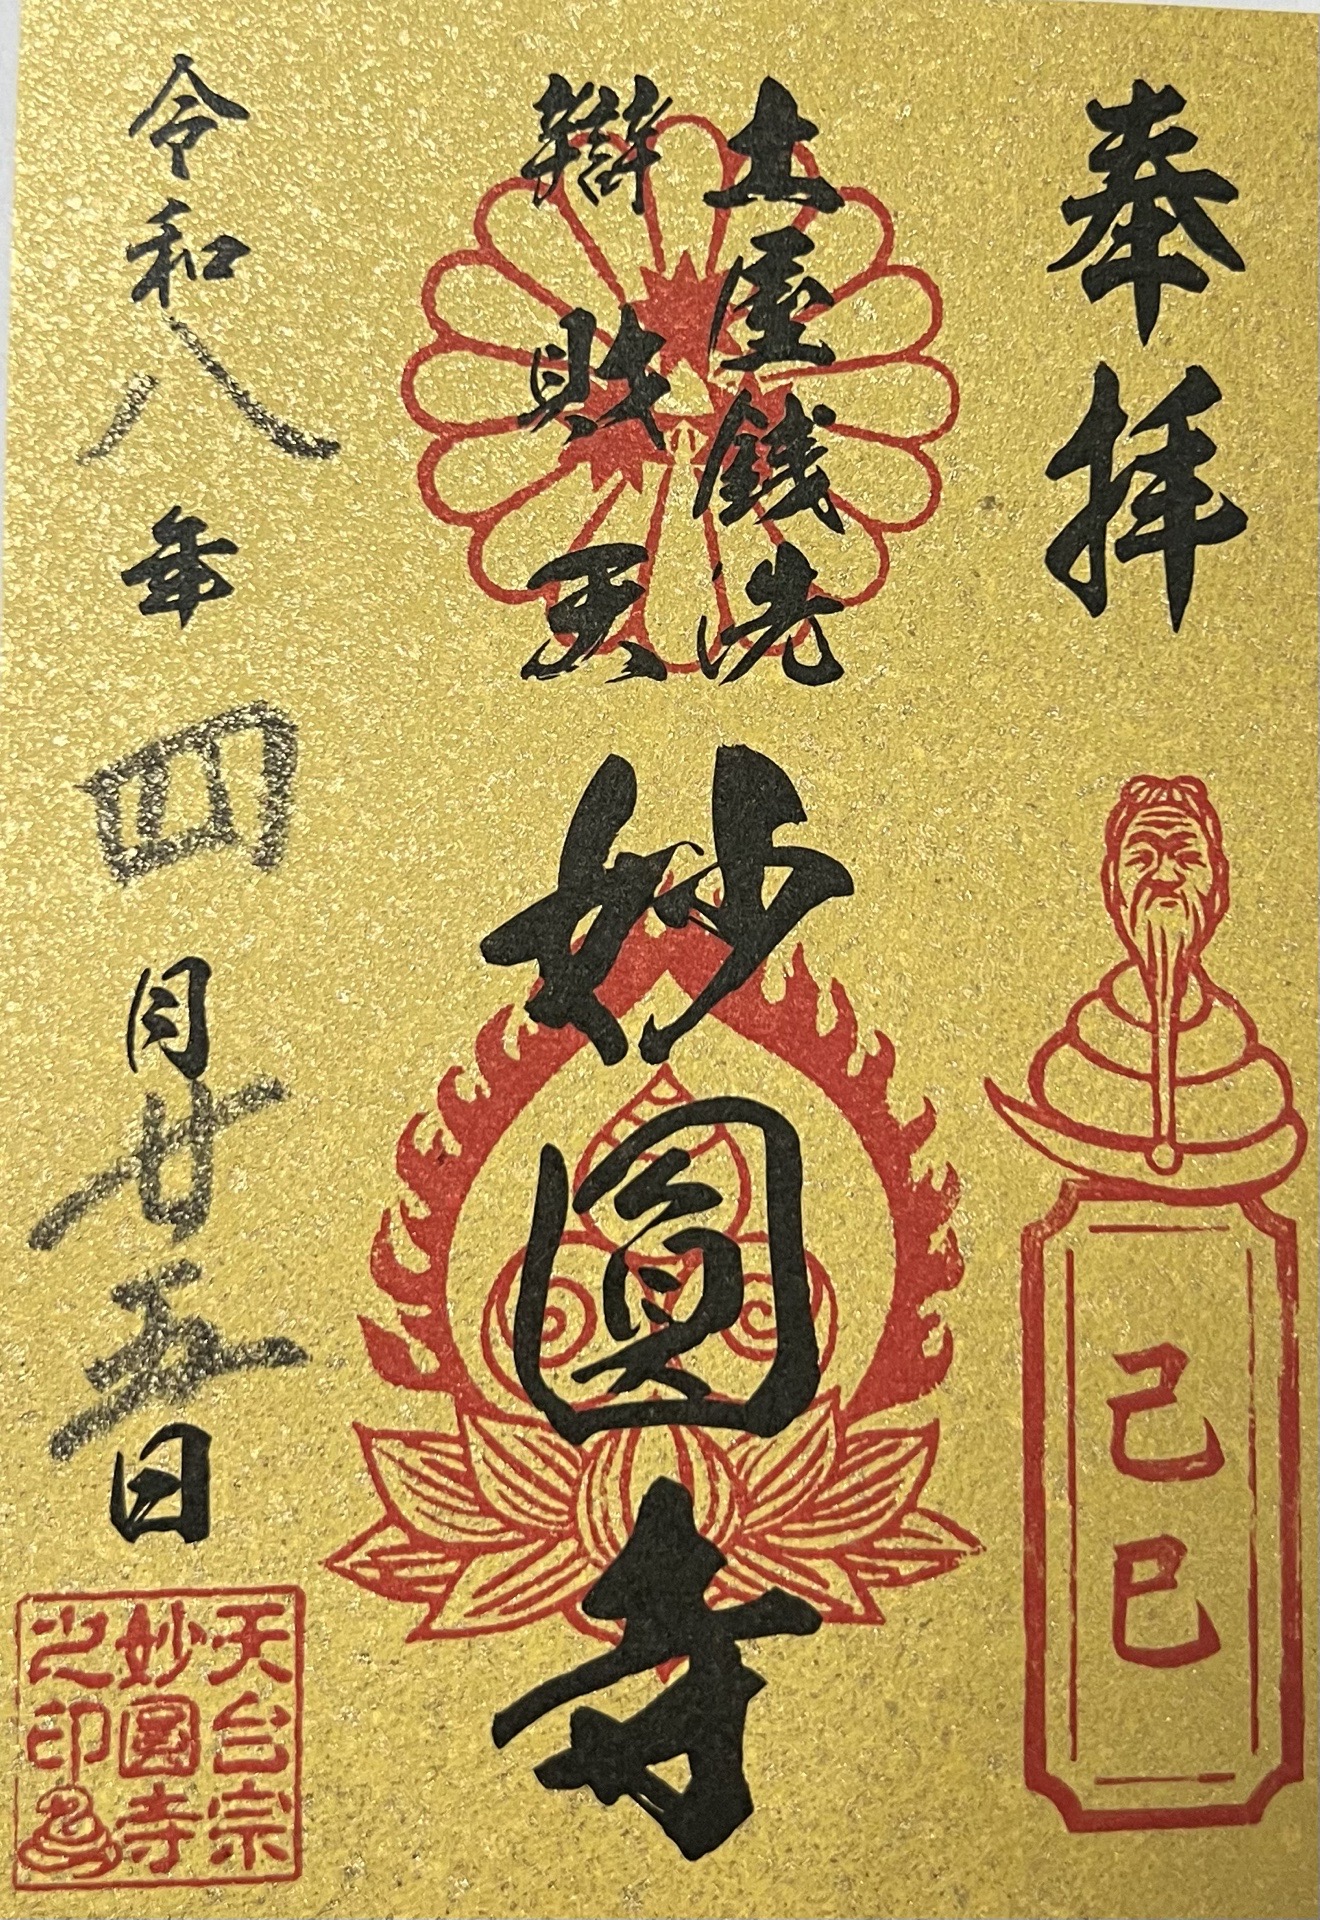 奉拝
己巳
土屋銭洗
辯財天
妙圓寺
令和八年四月廿五日
天台宗
妙圓寺
之印